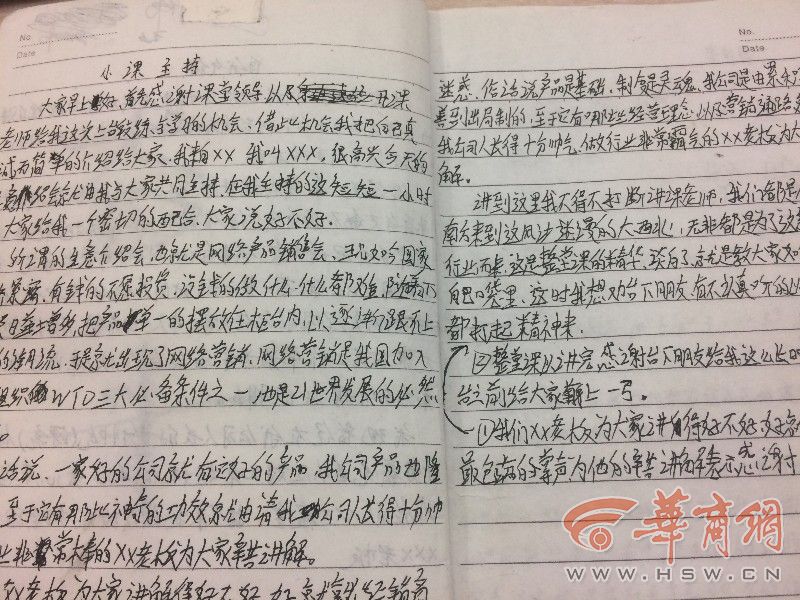 No.
Date
小课主持
大家早上好、首先感谢课堂领导以及 讲课
老师给我这次上台锻练与学习的机会、借此机会我把自己真
诚而简单的介绍给大家、我来自XX 我叫XXX，很高兴今天的
生意介绍会就由我与大家共同主持、在我主持的这短短一小时
大家给我一个密切的配合、大家说好不好。
所谓的生意介绍会、也就是网络产品销售会、现如今国家
有钱的不愿投资、没钱的做什么什么都难
日益增多，把产品单一的摆放在柜台内，以逐渐跟不上
的潮流、于是就出现了网络营销、网络营销是我国加入
组织WTO三大必备条件之一，也是21世界发展的必然
话说、一家好的公司就有它好的产品、我公司产品也隆
至于它有那些神奇的功效就由请我公司人长得十分帅
业非常棒的XX老板为大家辛苦讲解。
XX老板为大家讲解得好不好
No.
Date
迷惑、俗话说产品是基础、制度是灵魂、我公司是由累
善到出局制的，至于它有那些经营理念，以及营销通路
我公司人长得十分帅气、做行业非常霸气的XX老板为大
解。
讲到这里我不得不打断讲课老师，我们都是
南来到这风沙迷漫的大西北，无非都是为了这
行业而来、这是整堂课的精华、说白了就是教大家如
自己口袋里、这时我想劝台下朋友有不认真听的
都打起精神来。
②整堂课以讲完感谢台下朋友给我这么长
台之前给大家鞠上一弓。
①我们XX老板为大家讲得好不好
最饱满的掌声为他的辛苦讲解表示感谢
華商網
WWW.HSW.CN